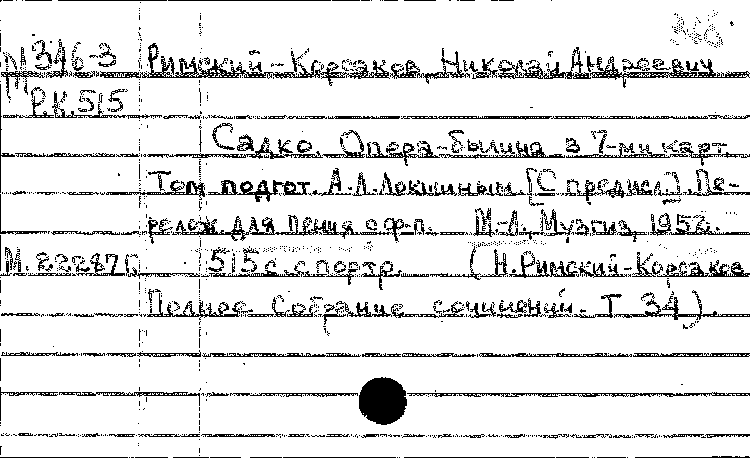 М346-3 Римский-Корсаков, Николай Андреевич
Р.К.515
Садко. Опера-былина в 7-ми карт.
Том подгот. А.Л.Локшиным. [С предисл.]. Пе-
релож. для пения с ф-п. М.-Л., Музгиз, 1952.
М.22287 г. 515 с. с портр. (Н.Римский-Корсаков
Полное собрание сочинений. Т. 34).